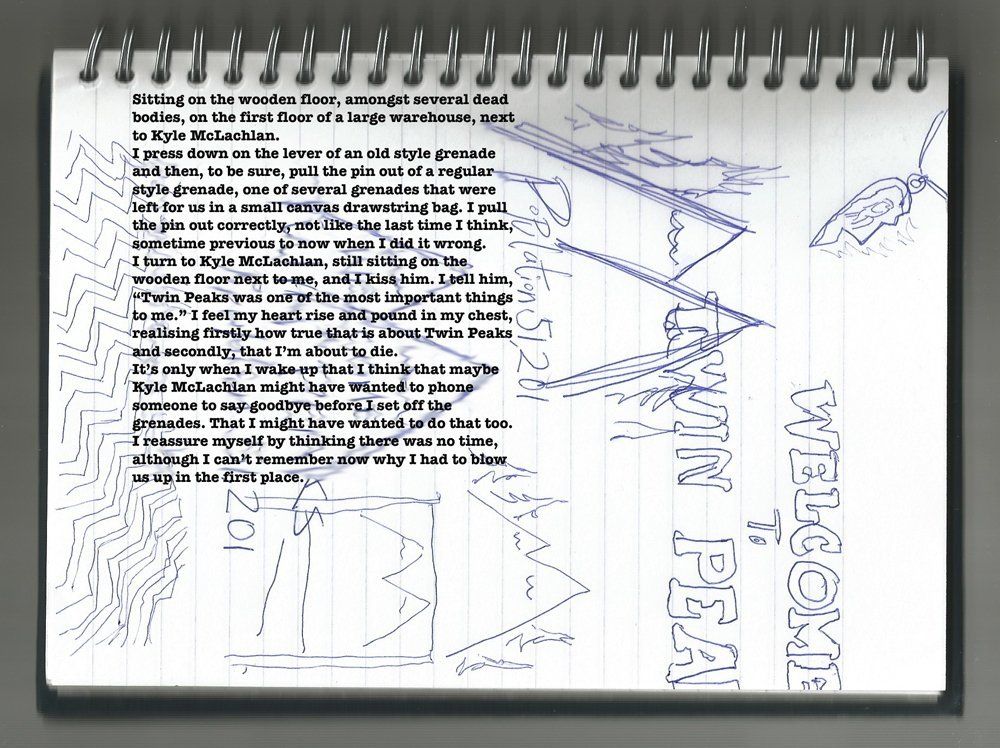 Sitting on the wooden floor, amongst several dead
bodies, on the first floor of a large warehouse, next
to Kyle McLachlan.
I press down on the lever of an old style grenade
and then, to be sure, pull the pin out of a regular
style grenade, one of several grenades that were
left for us in a small canvas drawstring bag. I pull
the pin out correctly, not like the last time I think,
sometime previous to now when I did it wrong.
I turn to Kyle McLachlan, still sitting on the
wooden floor next to me, and I kiss him. I tell him,
“Twin Peaks was one of the most important things
to me.” I feel my heart rise and pound in my chest,
realising firstly how true that is about Twin Peaks
and secondly, that I’m about to die.
It’s only when I wake up that I think that maybe
Kyle McLachlan might have wanted to phone
someone to say goodbye before I set off the
grenades. That I might have wanted to do that too.
I reassure myself by thinking there was no time,
although I can’t remember now why I had to blow
us up in the first place.
WELCOME
To
TWIN PEA
Population 51,201
201